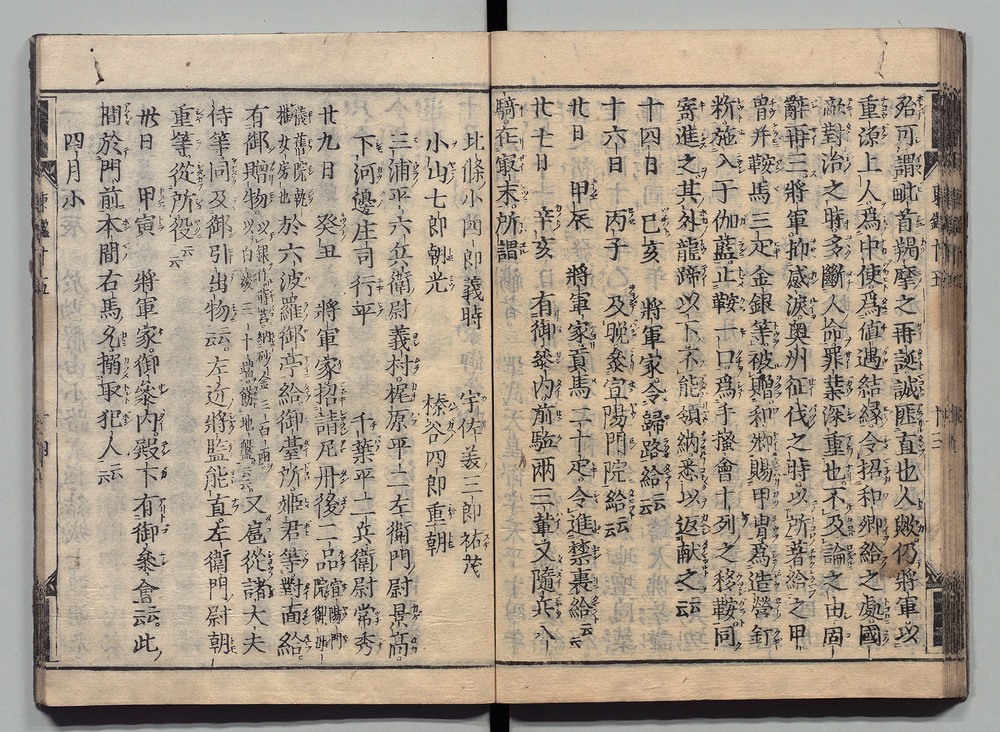 殆可謂毗首羯摩之再誕誠匪直也人歟仍將軍以
重源上人爲中使爲値遇結縁令招和卿給之處國
敵對治之時多斷人命罪業深重也不及論之由固
辭再三將軍抑感淚奥州征伐之時以所著給之甲
冑并鞍馬三疋金銀等被贈和卿賜甲冑爲造營釘
料施入于伽藍止鞍一口爲手搔會十列之移鞍同
寄進之其外龍蹄以下不能領納悉以返献之云云
十四日 巳亥 將軍家令歸路給云云
十六日 丙子 及晚參宣陽門院給云云
廿日 甲辰 將軍家貢馬二十疋令進禁裏給云云
廿七日 辛亥 有御參内前駈兩三輩又隨兵八
騎在最末所謂
北條小四郎義時 宇佐美三郎祐茂
小山七郎朝光 榛谷四郎重朝
三浦平六兵衛尉義村 梶原平二左衛門尉景高
下河邊庄司行平 千葉平二兵衛尉常秀
廿九日 癸丑 將軍家招請尼丹後二品宣陽門院御母
儀舊院執權女房也於六波羅御亭給御臺所姫君等對面給
有御贈物以銀作蒔筥納砂金三百兩以白綾三十端餝地盤云云又扈從諸大夫
侍等同及御引出物云云左近將監能直左衛門尉朝
重等從所役云云
卅日 甲寅 將軍家御參内殿下有御參會云云此
間於門前本間右馬允搦取犯人云云
四月小
東鑑十五
十三
東鑑十五
十四